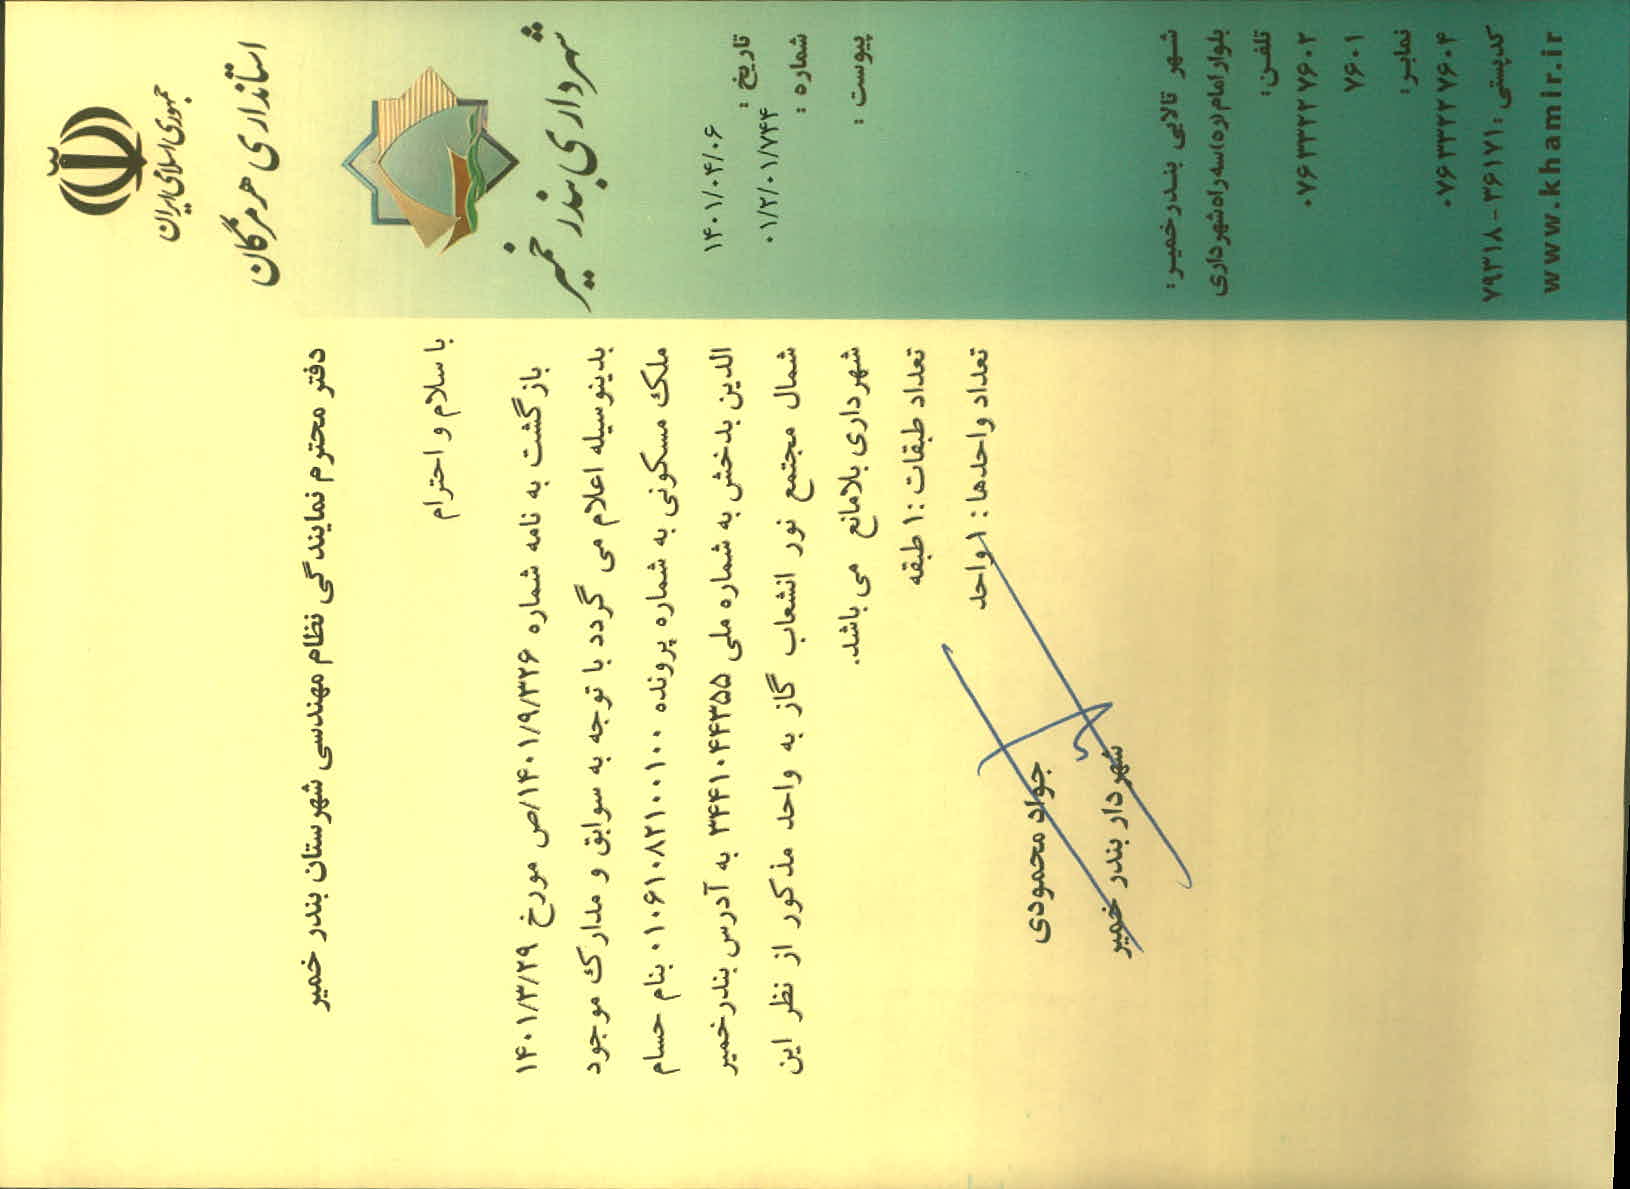 جمهوری اسلامی ایران
استانداری هرمزگان
شهرداری بندر خمیر
تاریخ : ۱۴۰۱/۰۴/۰۶
شماره : ۰۱/۲/۰۱/۷۴۴
پیوست :
دفتر محترم نمایندگی نظام مهندسی شهرستان بندر خمیر
با سلام و احترام
بازگشت به نامه شماره ۱۴۰۱/۹/۳۲۶/ص مورخ ۱۴۰۱/۳/۲۹
بدینوسیله اعلام می گردد با توجه به سوابق و مدارک موجود
ملک مسکونی به شماره پرونده ۰۱۰۶۱۰۸۲۱۰۰۱۰۰ بنام حسام
الدین بدخش به شماره ملی ۳۴۴۱۰۴۴۳۵۵ به آدرس بندرخمیر
شمال مجتمع نور انشعاب گاز به واحد مذکور از نظر این
شهرداری بلامانع می باشد.
تعداد طبقات :۱ طبقه
تعداد واحدها : ۱واحد
جواد محمودی
شهردار بندر خمیر
شهر تالابی بندرخمیر:
بلوار امام(ره)سه راه شهرداری
تلفن:
۰۷۶۳۳۲۲۷۶۰۲
۷۶۰۱
نمابر:
۰۷۶۳۳۲۲۷۶۰۴
کدپستی :۳۶۱۷۱-۷۹۳۱۸
www.khamir.ir